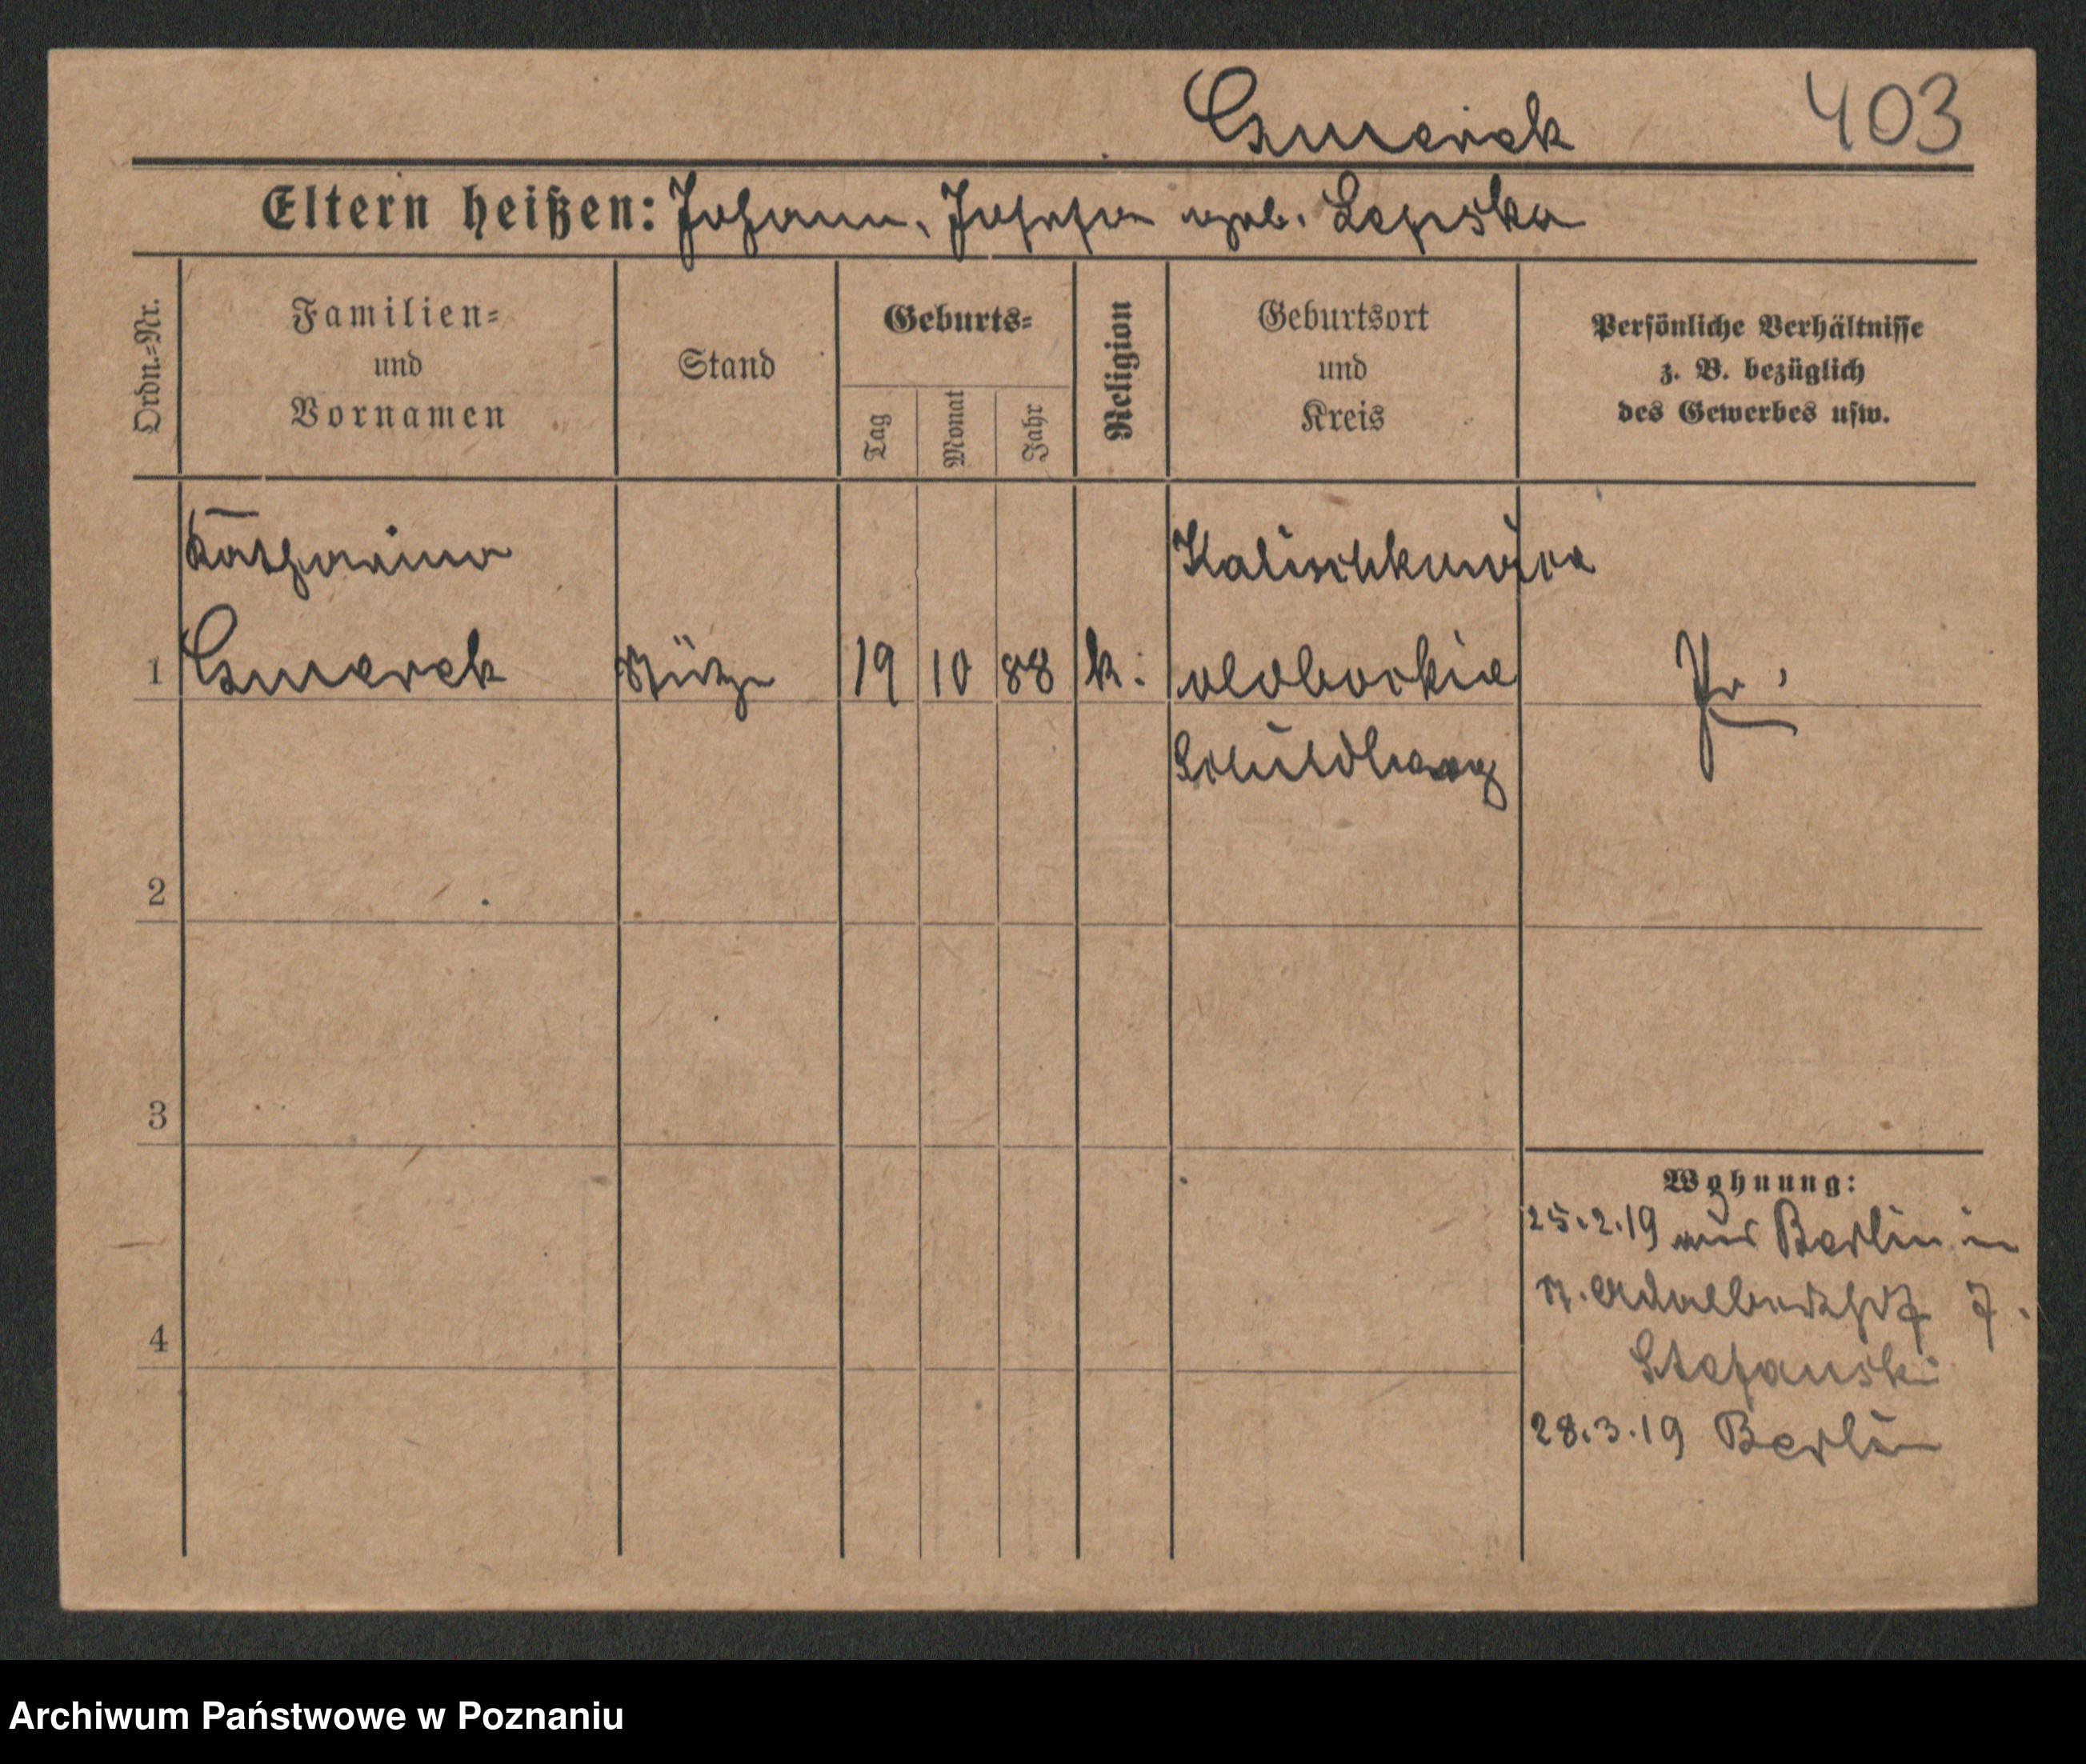 Csmerek 403
Eltern heißen: Johann, Josefa geb. Lepska
Ordn.-Nr.
Familien-
und
Vornamen
Stand
Geburts-
Tag
Monat
Jahr
Religion
Geburtsort
und
Kreis
Persönliche Verhältnisse
z. B. bezüglich
des Gewerbes usw.
Katharina
1 Csmerek 19 10 88 k.
Schildberg
Pr.
2
3
4
Wohnung:
25.2.19 aus Berlin in
n. Adalbertstr 7.
Stefanski
28.3.19 Berlin
Archiwum Państwowe w Poznaniu